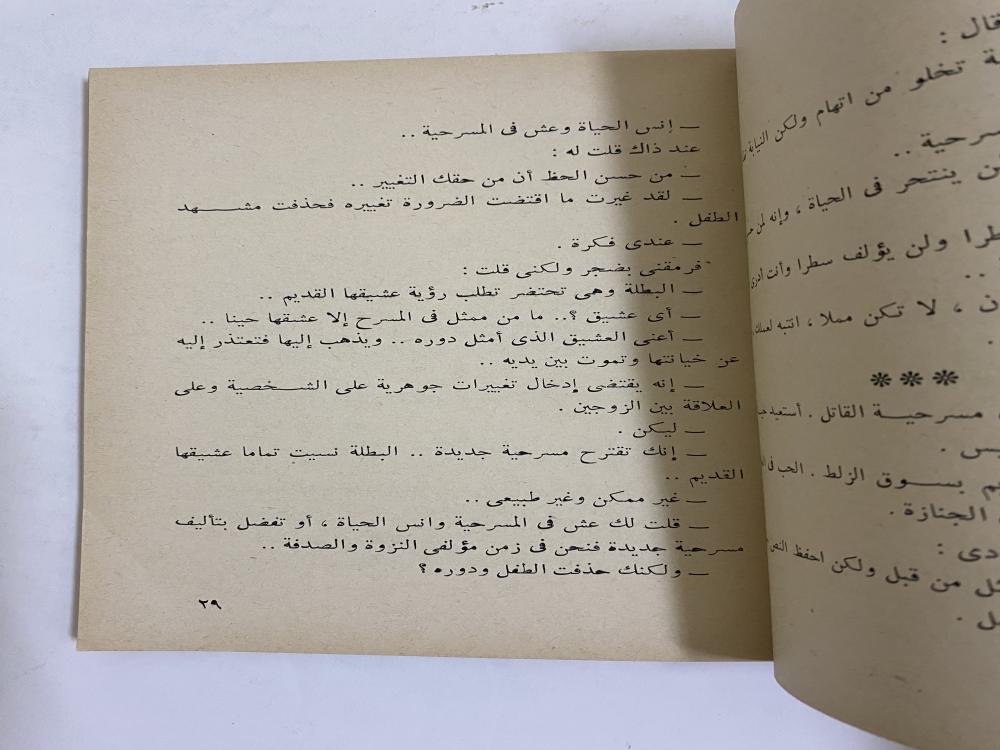 — إنس الحياة وعش فى المسرحية ..
عند ذاك قلت له :
— من حسن الحظ أن من حقك التغيير ..
— لقد غيرت ما اقتضت الضرورة تغييره فحذفت مشهد
الطفل .
— عندى فكرة .
فرمقنى بضجر ولكنى قلت :
— البطلة وهى تحتضر تطلب رؤية عشيقها القديم ..
— أى عشيق ؟.. ما من ممثل فى المسرح إلا عشيقها حينا ..
— أعنى العشيق الذى أمثل دوره .. ويذهب إليها فتعتذر إليه
عن خيانتها وتموت بين يديه ..
— إنه يقتضى إدخال تغييرات جوهرية على الشخصية وعلى
العلاقة بين الزوجين .
— ليكن .
— إنك تقترح مسرحية جديدة .. البطلة نسيت تماما عشيقها
القديم ..
— غير ممكن وغير طبيعى ..
— قلت لك عش فى المسرحية وانس الحياة ، أو تفضل بتأليف
مسرحية جديدة فنحن فى زمن مؤلفى النزوة والصدفة ..
— ولكنك حذفت الطفل ودوره ؟
٢٩
قال :
تخلو من اتهام ولكن النيابة
سرحية ..
ينتحر فى الحياة ، وإنه لمن
ولن يؤلف سطرا وأنت أدرى
..
، لا تكن مملا ، انتبه لعملك
***
مسرحية القاتل . أستعيد
بسوق الزلط . الحب فى
الجنازة .
من قبل ولكن احفظ النص